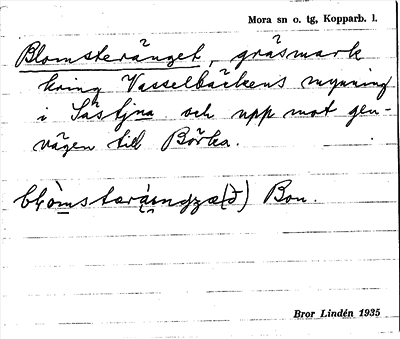 Mora sn o. tg, Kopparb. l.
Blomsteränget, gräsmark
kring Vasselbäckens mynning
i Såstjna och upp mot gen-
vägen till Börka.
Bon.
Bror Lindén 1935